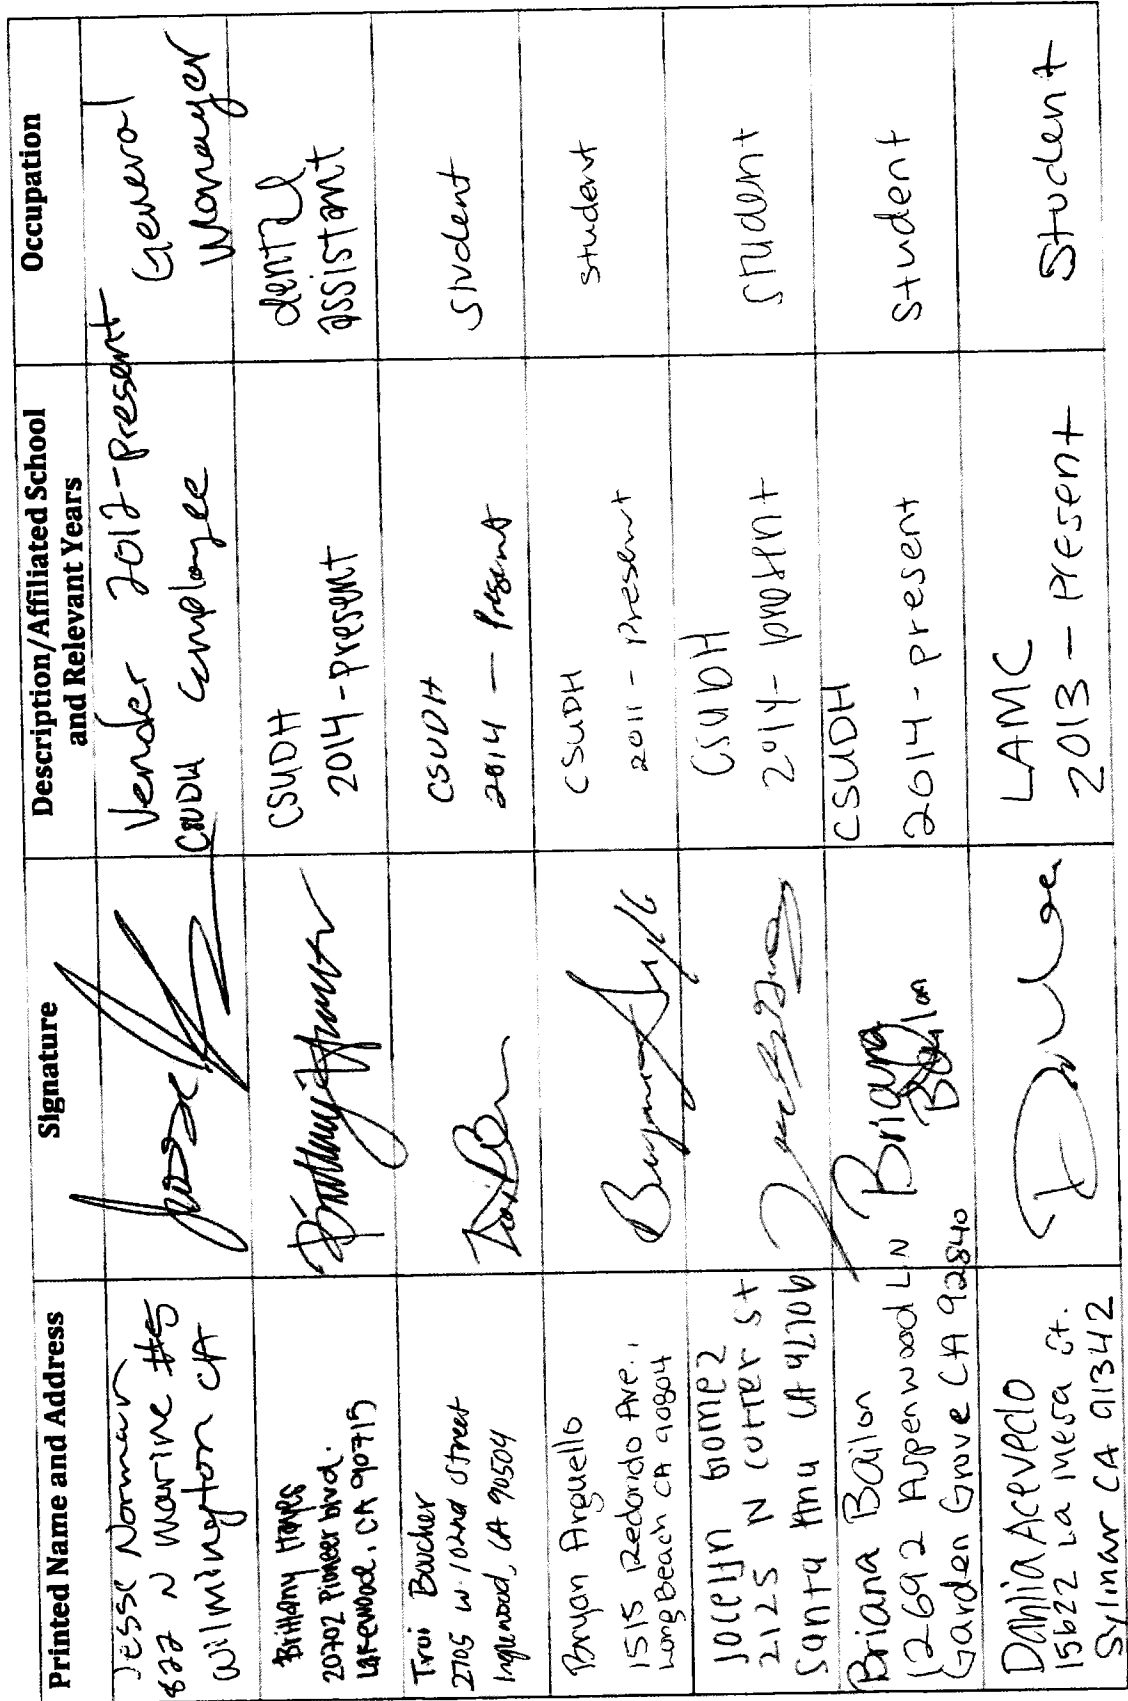 Printed Name and Address
Signature
Description/Affiliated School
and Relevant Years
Occupation
Jesse Norman
822 N Marine #5
Wilmington CA
Vender 2012-present
CSUDH employee
General
Manager
Brittany Hayes
20702 Pioneer blvd.
Lakewood, CA 90715
CSUDH
2014-present
dental
assistant
Troi Boucher
2705 w. 102nd Street
Inglewood, CA 90504
CSUDH
2014 - Present
Student
Bryan Arguello
1515 Redondo Ave.,
Long Beach CA 90804
CSUDH
2011 - Present
student
Jocelyn Gomez
2125 N Cotter St
Santa Ana CA 92706
CSUDH
2014- present
student
Briana Bailon
12692 Aspenwood LN
Garden Grove CA 92840
Briana
Bailon
CSUDH
2014-present
Student
Dahlia Acevedo
15622 La Mesa Ct.
Sylmar CA 91342
LAMC
2013 - Present
Student